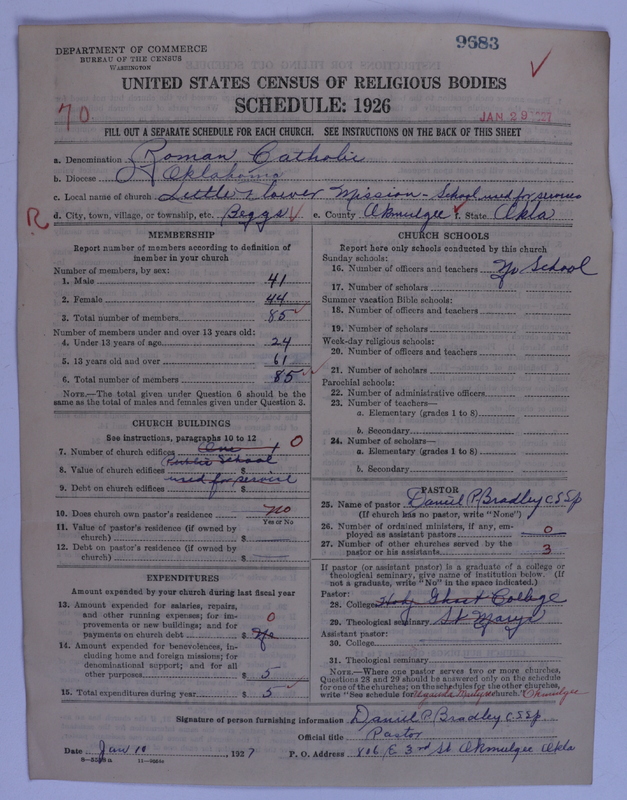 DEPARTMENT OF COMMERCE
BUREAU OF THE CENSUS
WASHINGTON
9683
UNITED STATES CENSUS OF RELIGIOUS BODIES
SCHEDULE: 1926
70
JAN 29 1927
FILL OUT A SEPARATE SCHEDULE FOR EACH CHURCH. SEE INSTRUCTIONS ON THE BACK OF THIS SHEET
a. Denomination Roman Catholic
b. Diocese Oklahoma
c. Local name of church Little Flower Mission - School used for services
R
d. City, town, village, or township, etc. Beggs e. County Okmulgee f. State Okla
MEMBERSHIP
Report number of members according to definition of member in your church
Number of members, by sex:
1. Male 41
2. Female 44
3. Total number of members 85
Number of members under and over 13 years old:
4. Under 13 years of age 24
5. 13 years old and over 61
6. Total number of members 85
NOTE.—The total given under Question 6 should be the same as the total of males and females given under Question 3.
CHURCH BUILDINGS
See instructions, paragraphs 10 to 12
7. Number of church edifices One 1 0
8. Value of church edifices $ Public School
9. Debt on church edifices $ used for service
10. Does church own pastor's residence no
Yes or No
11. Value of pastor's residence (if owned by church) $
12. Debt on pastor's residence (if owned by church) $
EXPENDITURES
Amount expended by your church during last fiscal year
13. Amount expended for salaries, repairs, and other running expenses; for improvements or new buildings; and for payments on church debt $ 0
14. Amount expended for benevolences, including home and foreign missions; for denominational support; and for all other purposes $ 5
15. Total expenditures during year $ 5
CHURCH SCHOOLS
Report here only schools conducted by this church
Sunday schools:
16. Number of officers and teachers No School
17. Number of scholars
Summer vacation Bible schools:
18. Number of officers and teachers
19. Number of scholars
Week-day religious schools:
20. Number of officers and teachers
21. Number of scholars
Parochial schools:
22. Number of administrative officers
23. Number of teachers—
a. Elementary (grades 1 to 8)
b. Secondary
24. Number of scholars—
a. Elementary (grades 1 to 8)
b. Secondary
PASTOR
25. Name of pastor Daniel P. Bradley C.S.Sp
(If church has no pastor, write "None")
26. Number of ordained ministers, if any, employed as assistant pastors 0
27. Number of other churches served by the pastor or his assistants 3
If pastor (or assistant pastor) is a graduate of a college or theological seminary, give name of institution below. (If not a graduate, write "No" in the space indicated.)
Pastor:
28. College Holy Ghost College
29. Theological seminary St Marys
Assistant pastor:
30. College
31. Theological seminary
NOTE.—Where one pastor serves two or more churches, Questions 28 and 29 should be answered only on the schedule for one of the churches; on the schedules for the other churches, write "See schedule for Uganda Martyrs church." Okmulgee
Signature of person furnishing information Daniel P. Bradley C.S.Sp.
Official title Pastor
Date Jan 10 1927 P. O. Address 806 E 3rd St Okmulgee Okla